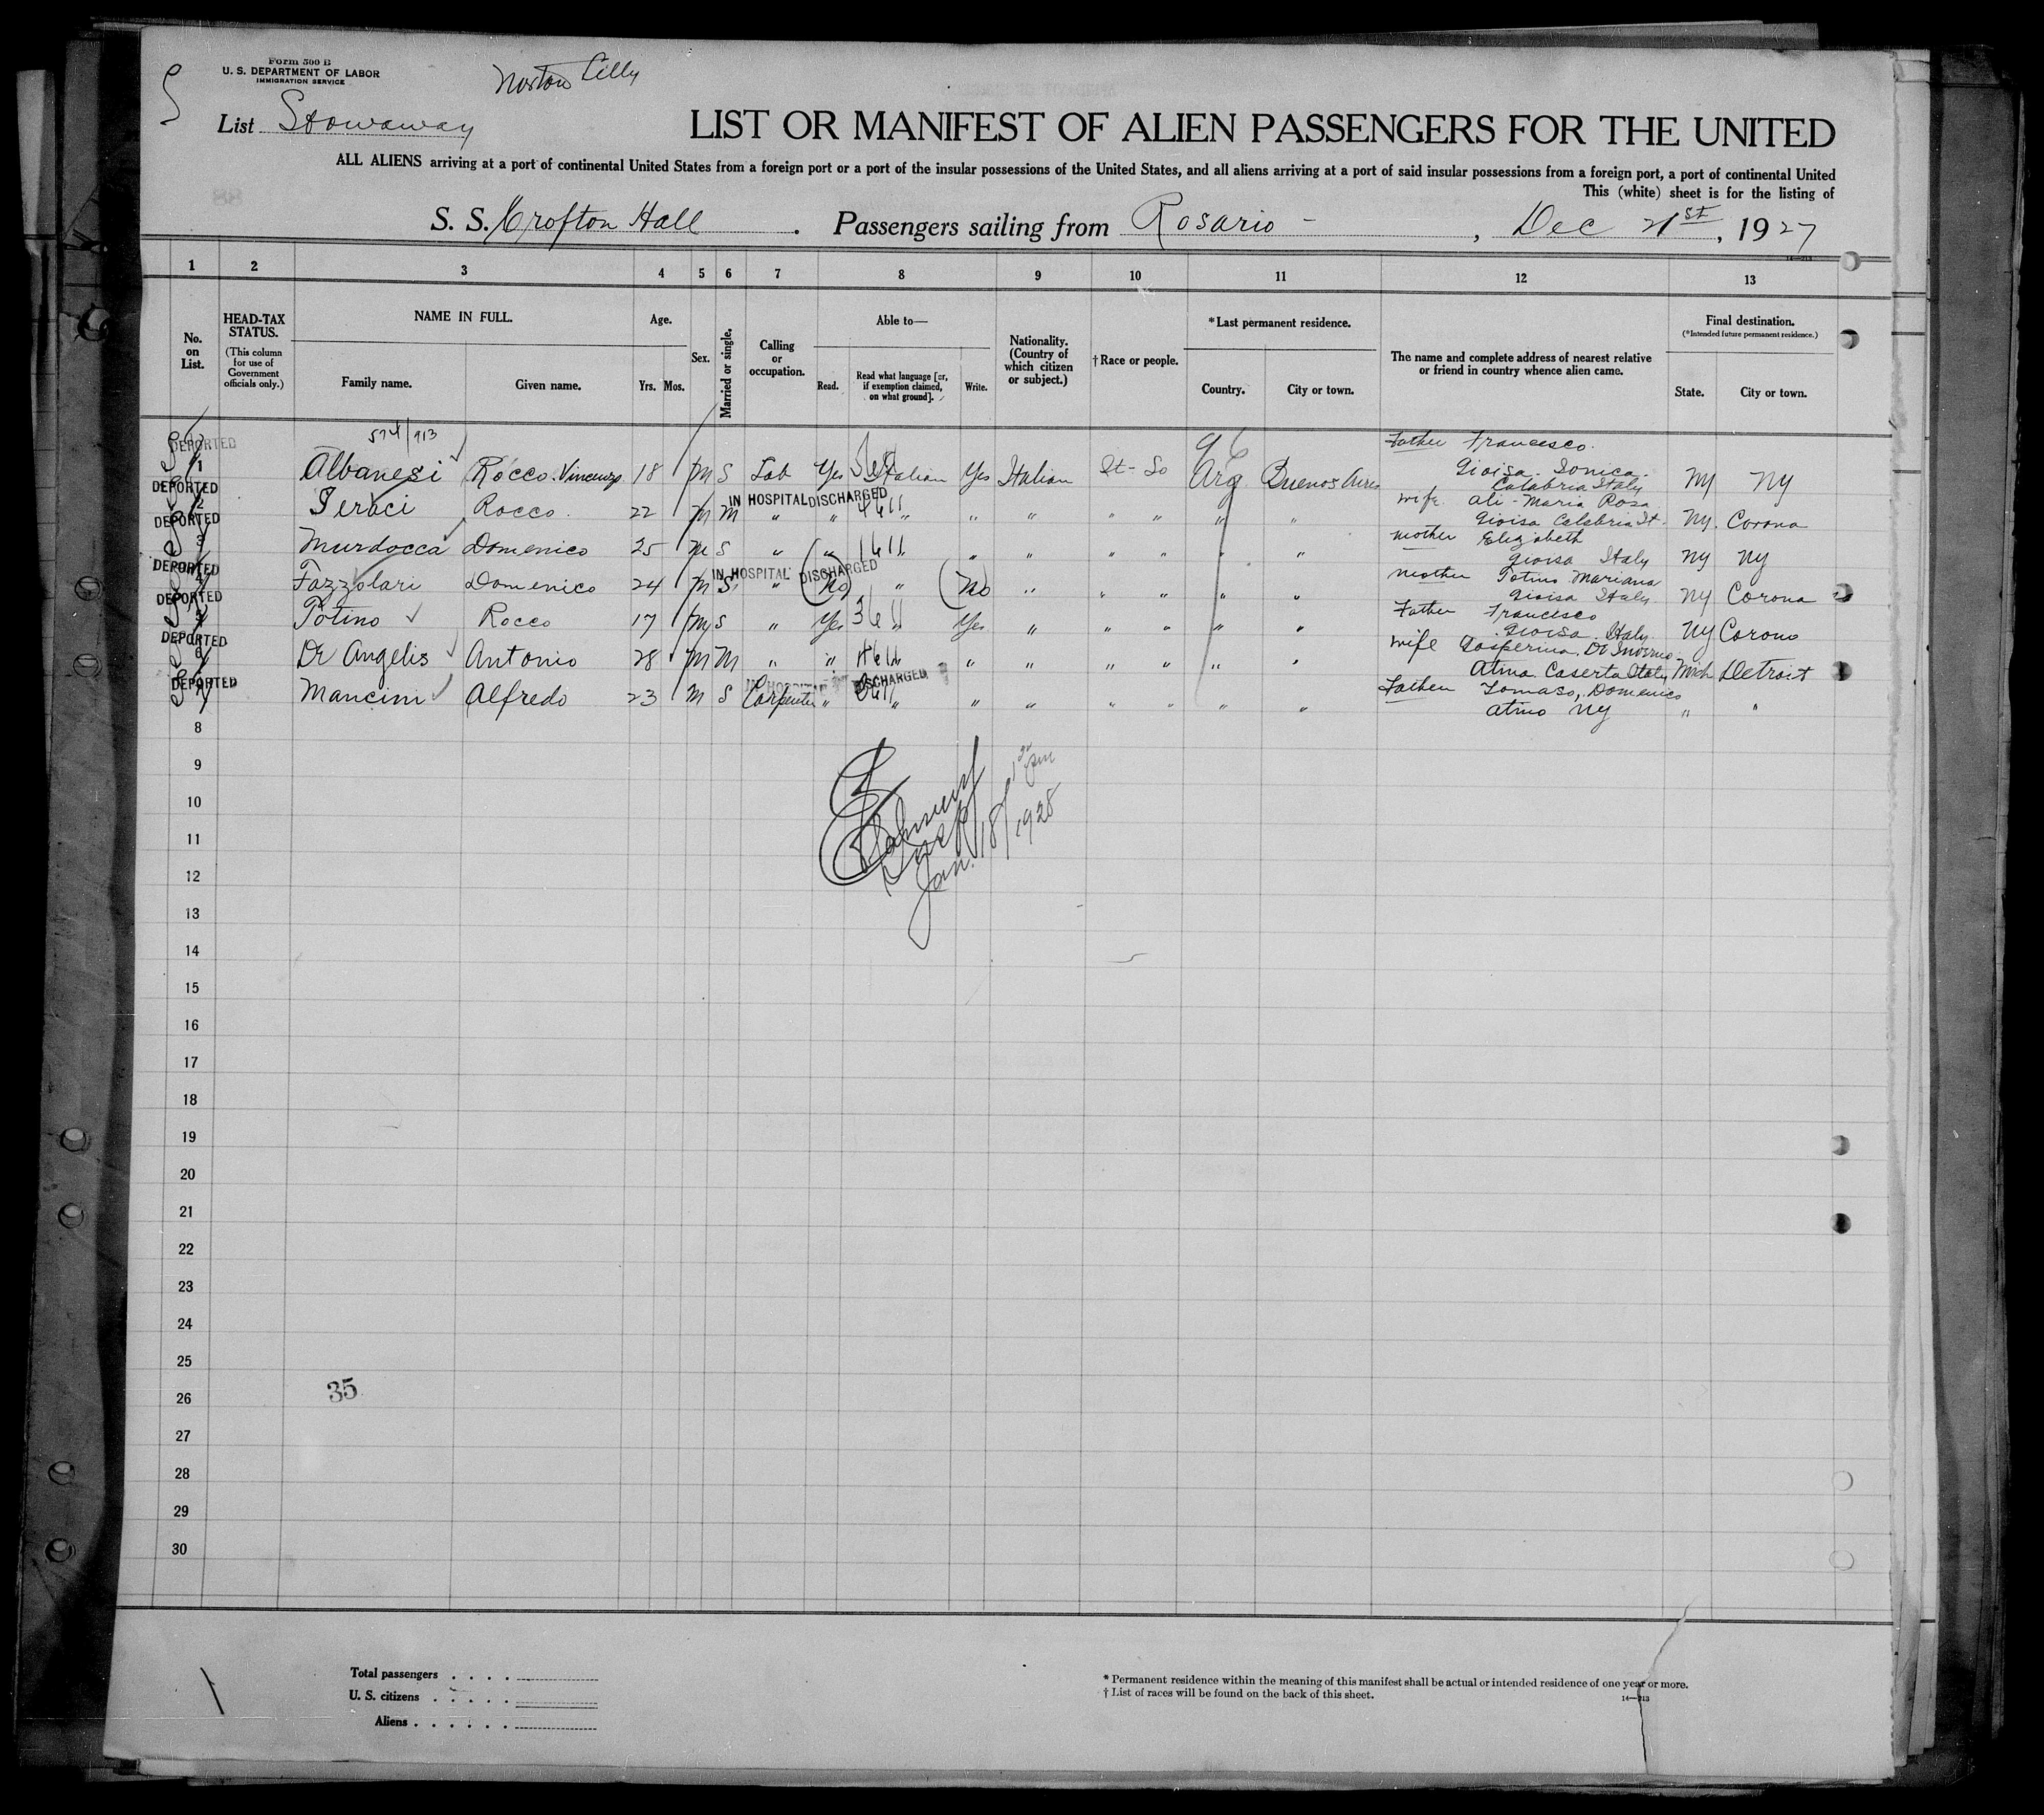 Form 500 B
U. S. DEPARTMENT OF LABOR
IMMIGRATION SERVICE
Norton Lilly
List Stowaway
LIST OR MANIFEST OF ALIEN PASSENGERS FOR THE UNITED
ALL ALIENS arriving at a port of continental United States from a foreign port or a port of the insular possessions of the United States, and all aliens arriving at a port of said insular possessions from a foreign port, a port of continental United
This (white) sheet is for the listing of
S. S. Crofton Hall . Passengers sailing from Rosario - , Dec 21st, 1927
14—213
1 2 3 4 5 6 7 8 9 10 11 12 13
No. on List.
HEAD-TAX STATUS.
(This column for use of Government officials only.)
NAME IN FULL.
Family name. Given name.
Age.
Yrs. Mos.
Sex.
Married or single.
Calling or occupation.
Able to—
Read. Read what language [or, if exemption claimed, on what ground]. Write.
Nationality. (Country of which citizen or subject.)
† Race or people.
*Last permanent residence.
Country. City or town.
The name and complete address of nearest relative or friend in country whence alien came.
Final destination.
(*Intended future permanent residence.)
State. City or town.
574/913
DEPORTED
Father Francesco.
1 Albanesi Rocco Vincenzo 18 M S Lab Yes Italian Yes Italian It - So Arg Buenos Aires Gioisa Ionica. Calabria Italy NY NY
DEPORTED
IN HOSPITAL DISCHARGED
2 Rocco. 22 M M " " " " " " " " " wife Ali - Maria Rosa Gioisa Calabria It. NY. Corona
DEPORTED
3 Murdocca Domenico 25 M S " " " " " " " " " mother Elizabeth Gioisa Italy NY NY
DEPORTED
IN HOSPITAL DISCHARGED
4 Fazzolari Domenico 24 M S " (No) " (No) " " " " " mother Totino Mariana Gioisa Italy NY Corona
DEPORTED
5 Totino Rocco 17 M S " Yes " Yes " " " " " Father Francesco Gioisa Italy NY Corona
DEPORTED
6 De Angelis Antonio 28 M M " " " " " " " " " wife Gosperina Di Inverno Atina Caserta Italy Mich Detroit
DEPORTED
IN HOSPITAL DISCHARGED
7 Mancini Alfredo 23 M S Carpenter " " " " " " " " Father Tomaso, Domenico Atino NY " "
8
9
10
11
12
13
14
15
16
17
18
19
20
21
22
23
24
25
26
27
28
29
30
Insp
Jan. 18/1928
35
Total passengers . . . .
U. S. citizens . . . . .
Aliens . . . . . .
* Permanent residence within the meaning of this manifest shall be actual or intended residence of one year or more.
† List of races will be found on the back of this sheet.
14—213